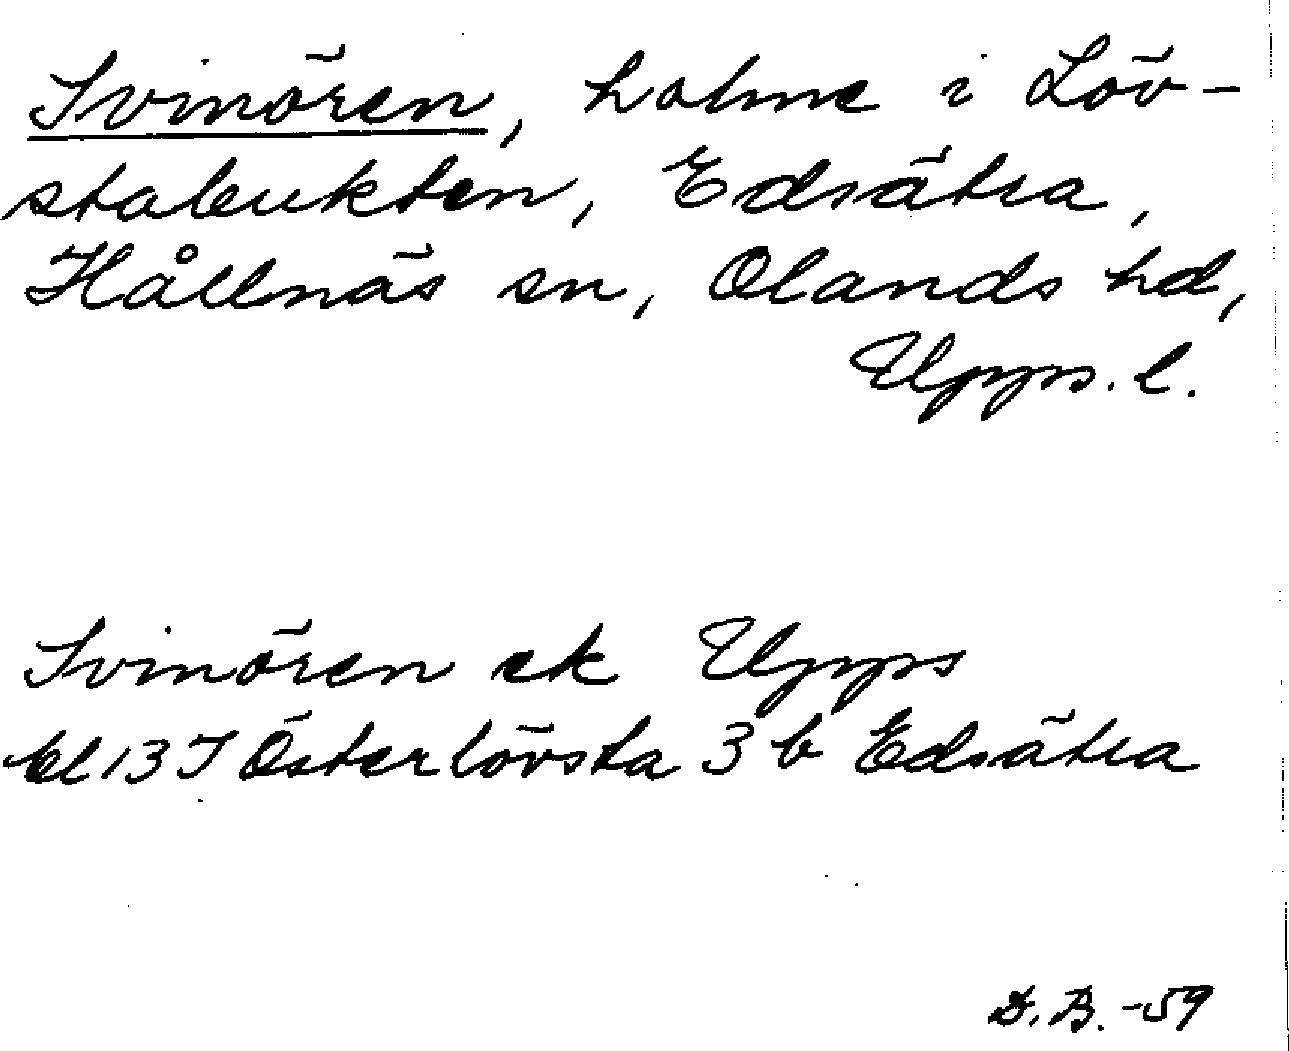 Svinören, holme i Löv-
stabukten, Edsätra,
Hållnäs sn, Olands hd,
Upps. l.
Svinören ek Upps
bl 13 I Österlövsta 3 b Edsätra
D.B. -59